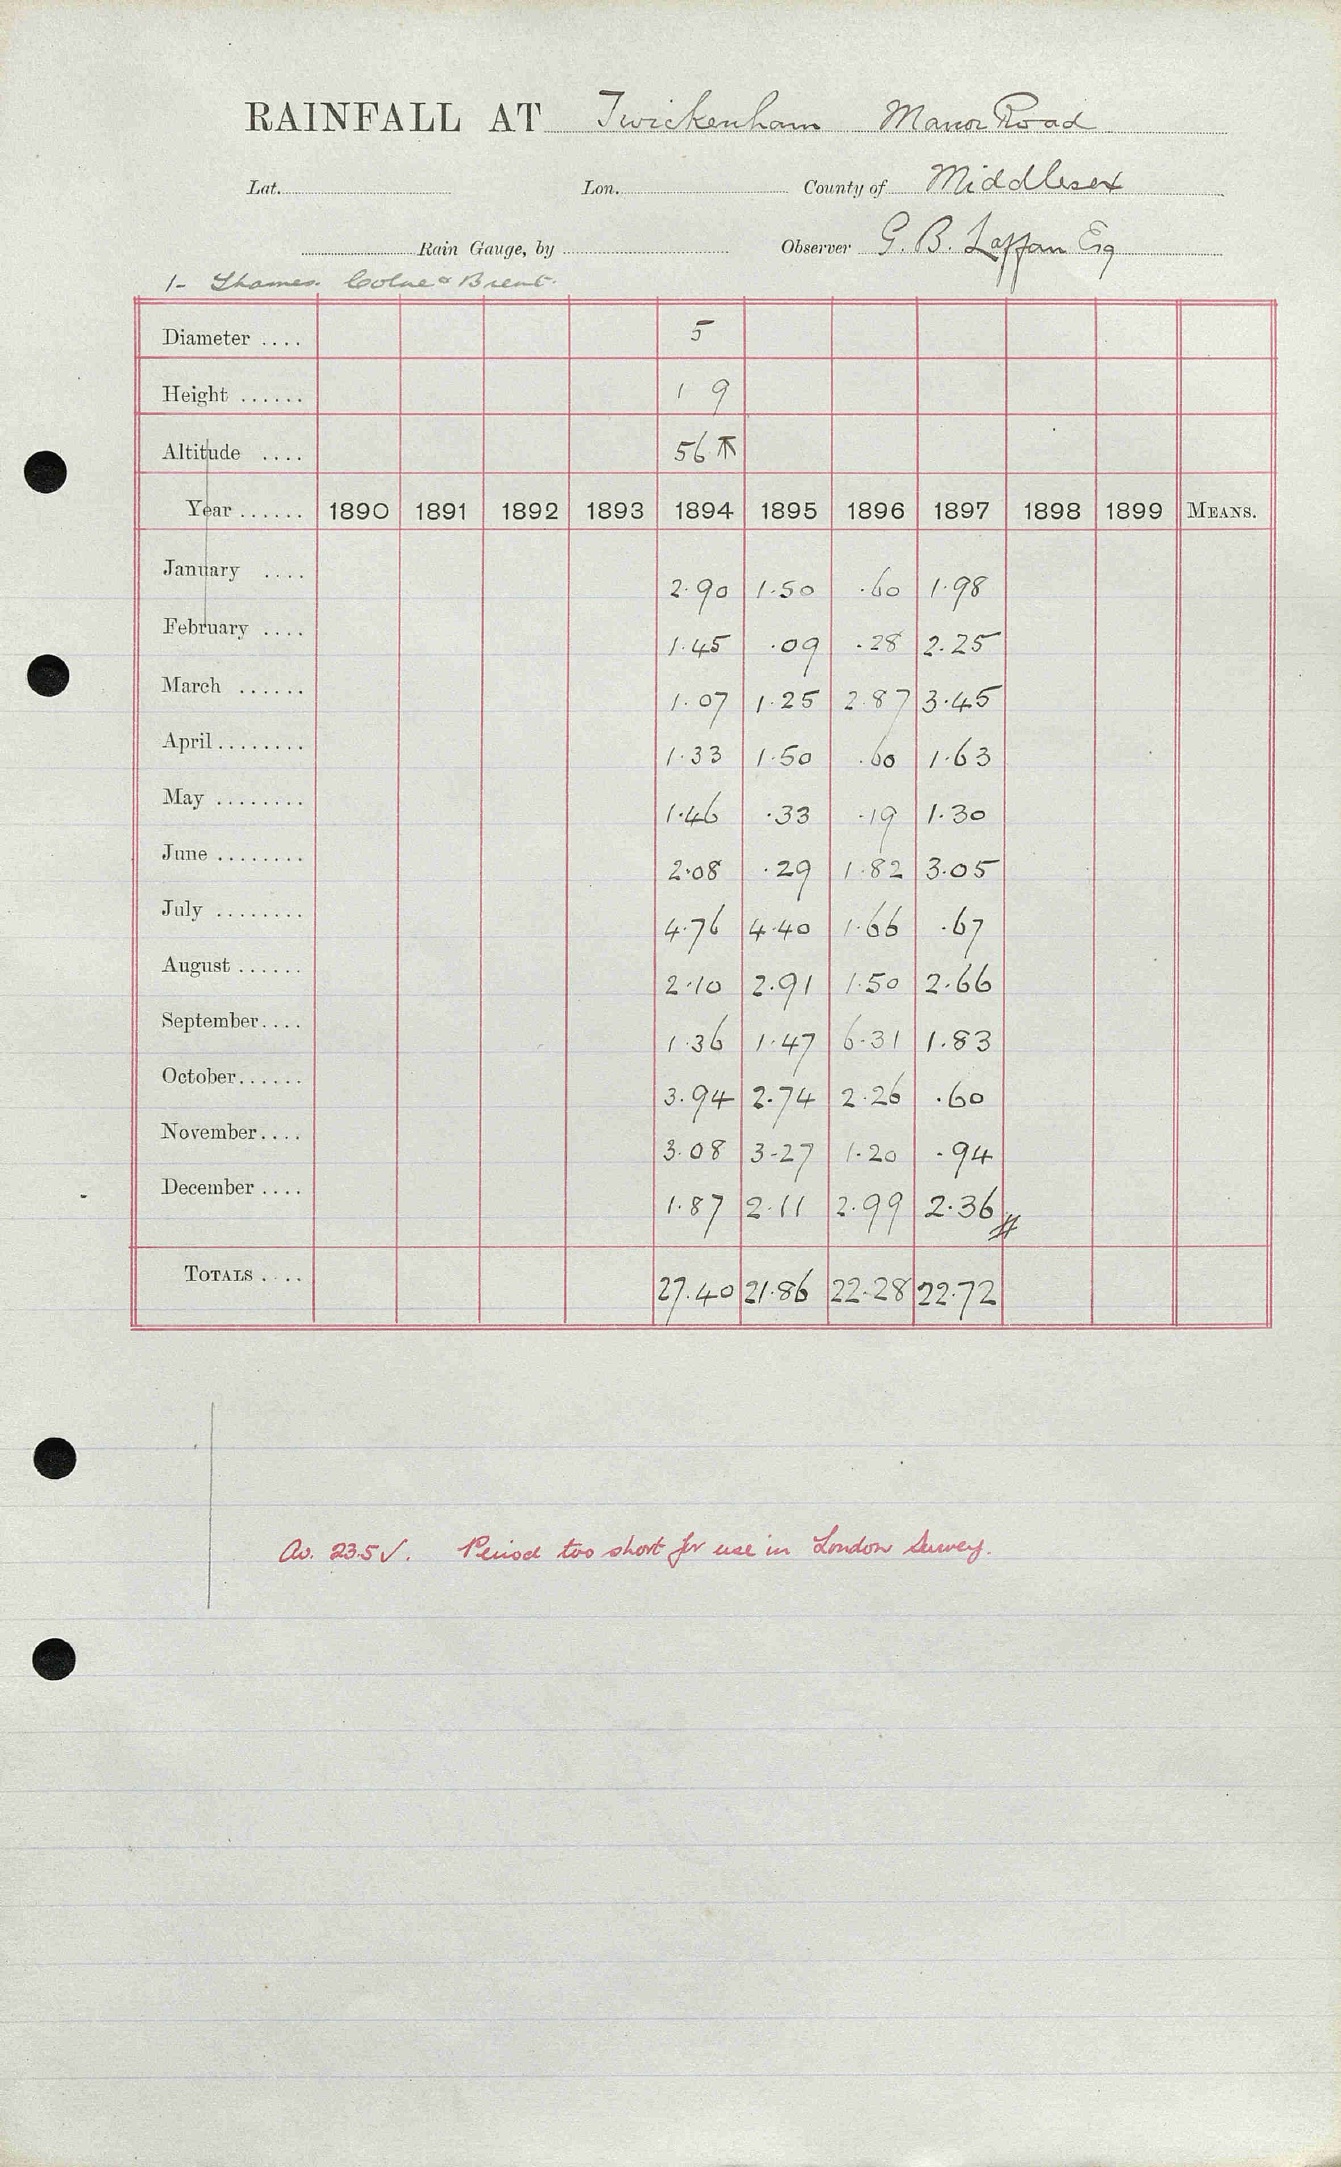 RAINFALL AT Twickenham Manor Road
Lat. Lon. County of Middlesex
Rain Gauge, by Observer G. B. Laffan Esq
1- Thames. Colne & Brent.
Diameter .... 5
Height ...... 1 9
Altitude .... 56
Year ...... 1890 1891 1892 1893 1894 1895 1896 1897 1898 1899 MEANS.
January .... 2.90 1.50 .60 1.98
February .... 1.45 .09 .28 2.25
March ...... 1.07 1.25 2.87 3.45
April ........ 1.33 1.50 .60 1.63
May ........ 1.46 .33 .19 1.30
June ........ 2.08 .29 1.82 3.05
July ........ 4.76 4.40 1.66 .67
August ...... 2.10 2.91 1.50 2.66
September.... 1.36 1.47 6.31 1.83
October...... 3.94 2.74 2.26 .60
November.... 3.08 3.27 1.20 .94
December .... 1.87 2.11 2.99 2.36
TOTALS .... 27.40 21.86 22.28 22.72
Av. 23.5 ✓. Period too short for use in London Survey.